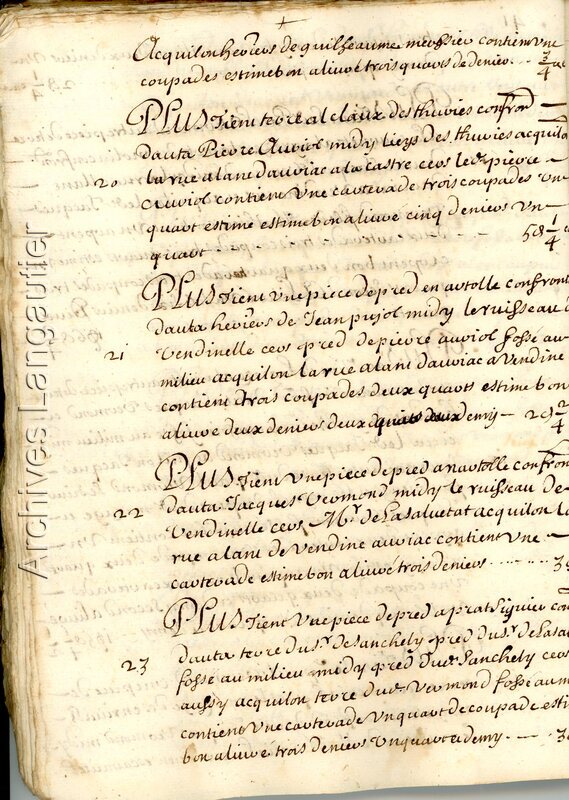 Acquilon heritiers de guilheaume messier contient une
coupades estime bon alivré trois quarts de denier .. 3/4
PLUS Tient terre al claux des thuries confron
dauta Pierre Auriol midy liers des thuries acquilon
20 la rue alant dauriac a la castre cers led. pierre
auriol contient Une carterade trois coupades Un
quart estime estime bon alivré cinq deniers Un
quart 5d 1/4
PLUS Tient Une piece de pred en autolle confront
dauta heritiers de Jean pujol midy le ruisseau de
21 Vendinelle cers pred de pierre auriol fossé au
milieu acquilon la rue alant dauriac a Vendine
contient trois coupades deux quarts estime bon
alivré deux deniers deux demy 2d 2/4
PLUS Tient Une piece de pred anautolle confron
22 dauta Jacques Vermond midy le ruisseau de
Vendinelle cers Mr. de Lasalvetat acquilon la
rue alant de Vendine auriac contient Une
carterade estime bon alivré trois deniers 3d
PLUS Tient Une piece de pred a prat siguier con
23 dauta terre du Sr. de Sanchely pred du Sr. de Lasa
fossé au milieu midy pred dud. Sanchely cers
aussy acquilon terre dud. Vermond fossé au m
contient Une carterade Un quart de coupade esti
bon alivré trois deniers Un quart et demy 3d
Archives Langautier